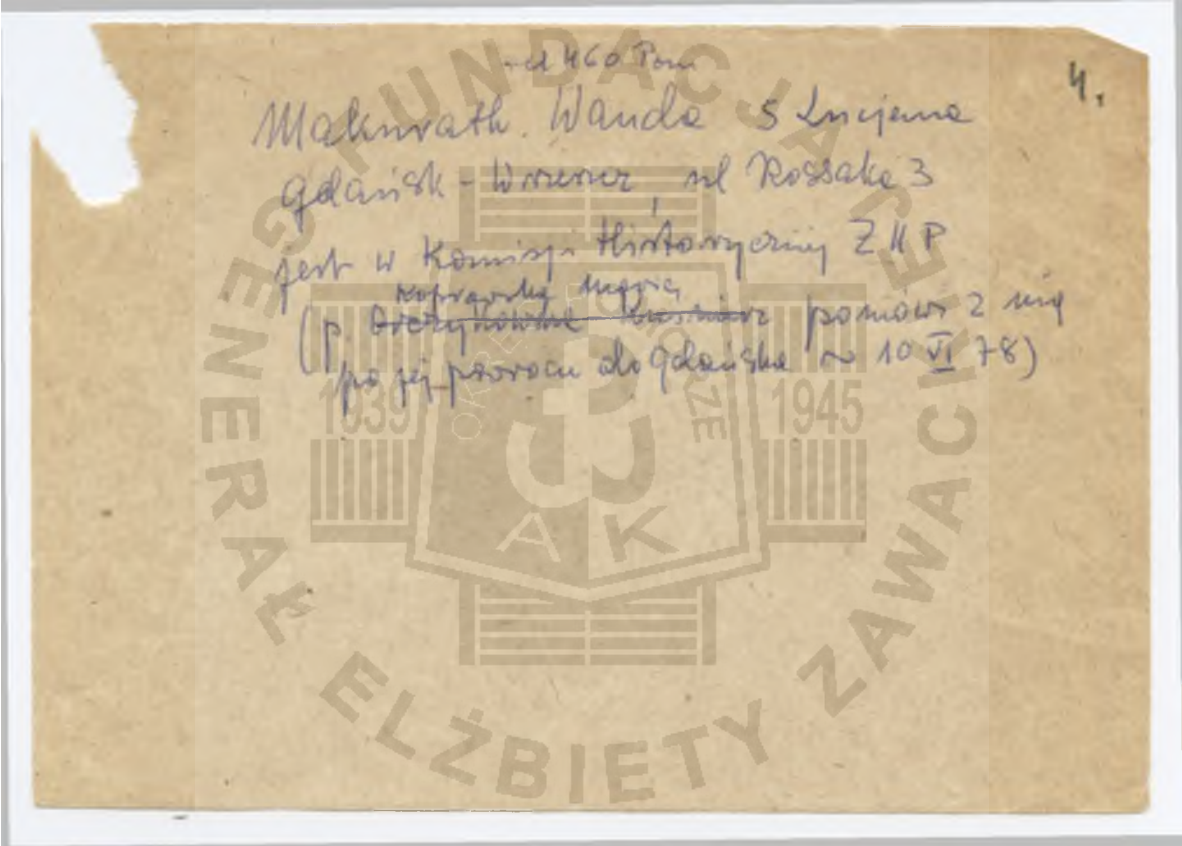 460 Pom
4.
Makurath. Wanda S Lucjana
Gdańsk - Wrzeszcz ul Kossaka 3
jest w Komisji Historycznej ZHP
Maria
(p. pomówi z nią
po jej powrocie do Gdańska ~ 10 VI 78)
FUNDACJA GENERAŁ ELŻBIETY ZAWACKIEJ
1939 1945
AK